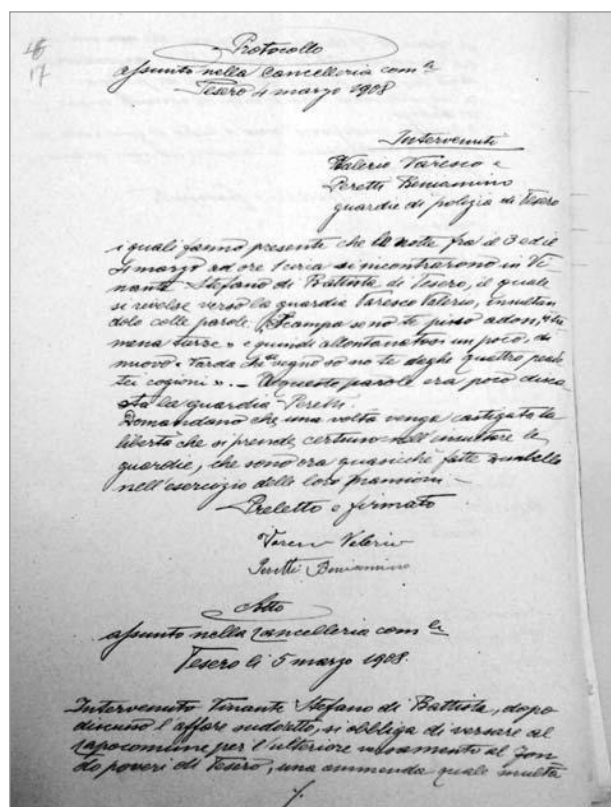 46
17
Protocollo
assunto nella Cancelleria com.le
Tesero 4 marzo 1908
Intervenuti
Valerio Varesco e
Peretti Beniamino
guardie di polizia di Tesero
i quali fanno presente che la notte fra il 3 ed il
4 marzo ad ore 1 circa si incontrarono in Vi-
nante Stefano di Battista di Tesero, il quale
si rivolse verso la guardia Varesco Valerio, insultan
dolo colle parole: Scampa se nò te pisso adoss,
mena turre » e quindi allontanatosi un poco, di
nuovo « Varda che vegno so no te deghe quattro
cogioni ». — A queste parole era poco disco
sta la guardia Peretti.
Domandano che, una volta venga castigata la
libertà che si prende certuno nell'insultare le
guardie, che sono ora quasichè fatte zimbello
nell'esercizio delle loro mansioni. —
Preletto e firmato
Varesco Valerio
Peretti Beniamino
Atto
assunto nella Cancelleria com.le
Tesero li 5 marzo 1908.
Intervenuto Vinante Stefano di Battista, dopo
discusso l'affare suddetto, si obbliga di versare al
Capocomune per l'ulteriore versamento al Fon
do poveri di Tesero, una ammenda quale multa